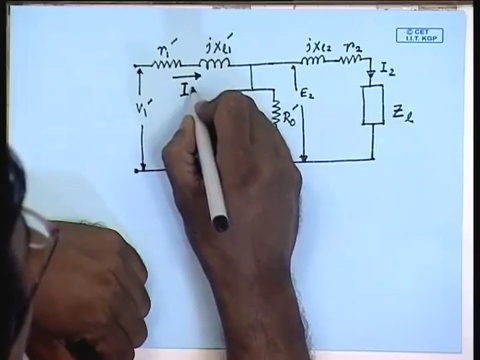 © CET
I.I.T. KGP
r₁′ jxₗ₁′ jxₗ₂ r₂
I₂
I
V₁′ E₂ R₀′ Zₗ